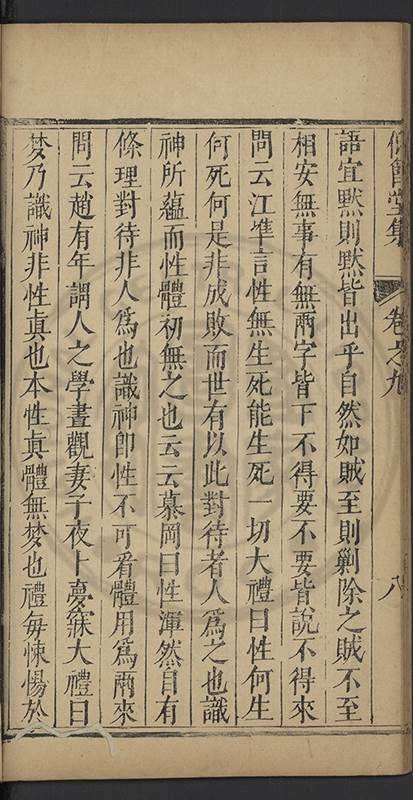 備堂集 卷之九 八
語宜默則默皆出乎自然如賊至則剿除之賊不至
相安無事有無兩字皆下不得要不要皆說不得來
問云江準言性無生死能生死一切大禮曰性何生
何死何是非成敗而世有以此對待者人為之也識
神所蘊而性體初無之也云云慕岡曰性渾然自有
條理對待非人為也識神卽性不可看體用為兩來
問云趙有年謂人之學晝觀妻子夜卜夢寐大禮曰
夢乃識神非性真也本性真體無夢也禮每悚惕於